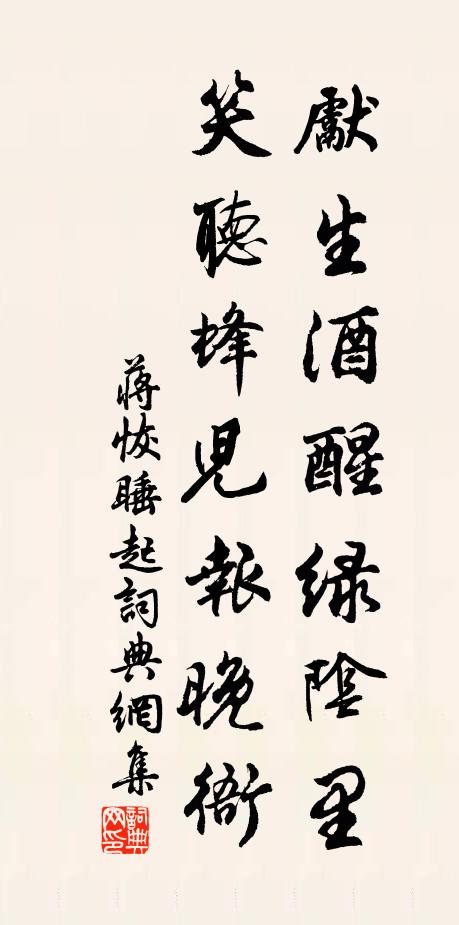 獻生酒醒綠陰里
笑聽蜂児報晚衙
蔣恢睡起詞典網集
詞典网印